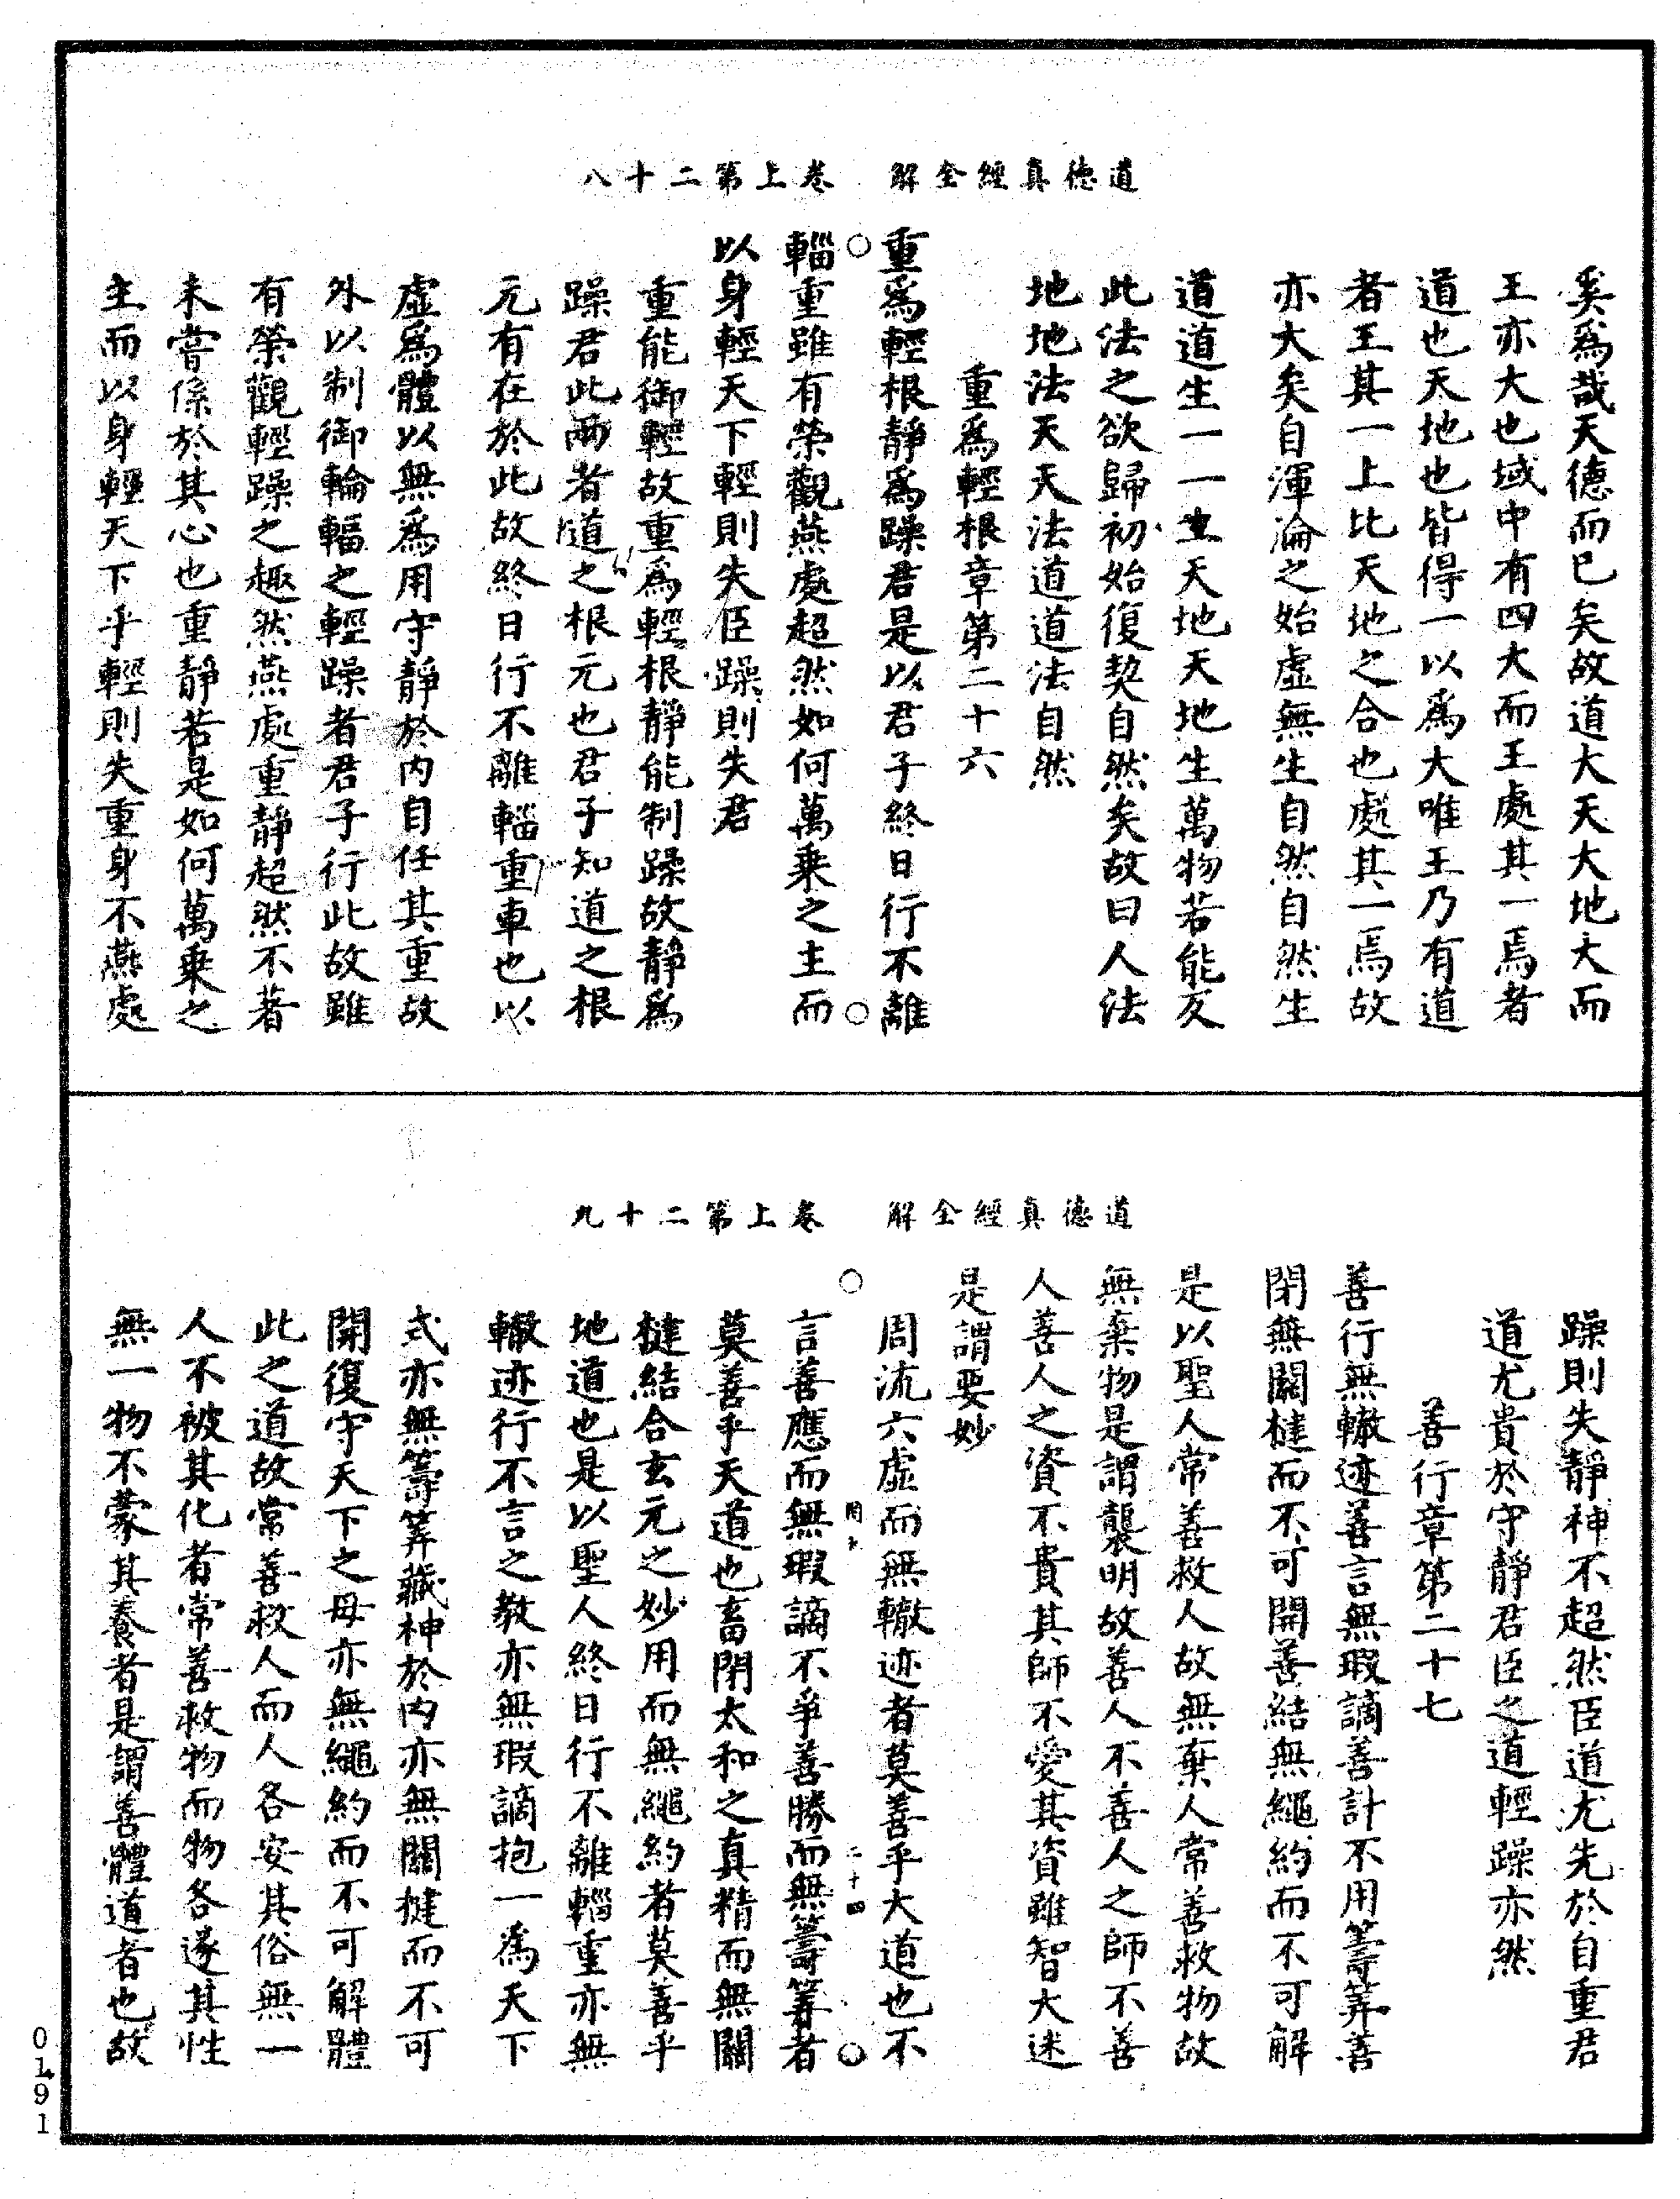 道德真經全解　卷上第二十八
奚爲哉天德而已矣故道大天大地大而
王亦大也域中有四大而王處其一焉者
道也天地也皆得一以爲大唯王乃有道
者王其一上比天地之合也處其一焉故
亦大矣自渾淪之始虛無生自然自然生
道道生一一生天地天地生萬物若能反
此法之欲歸初始復契自然矣故曰人法
地地法天天法道道法自然
重爲輕根章第二十六
重爲輕根靜爲躁君是以君子終日行不離
輜重雖有榮觀燕處超然如何萬乗之主而
以身輕天下輕則失臣躁則失君
重能御輕故重爲輕根靜能制躁故靜爲
躁君此兩者道之根元也君子知道之根
元有在於此故終日行不離輜重車也以
虛爲體以無爲用守靜於内自任其重故
外以制御輪輻之輕躁者君子行此故雖
有榮觀輕躁之趣然燕處重靜超然不著
未甞係於其心也重靜若是如何萬乗之
主而以身輕天下乎輕則失重身不燕處
道德真經全解　卷上第二十九
躁則失靜神不超然臣道尤先於自重君
道尤貴於守靜君臣之道輕躁亦然
善行章第二十七
善行無轍迹善言無瑕謫善計不用籌筭善
閉無關楗而不可開善結無繩約而不可解
是以聖人常善救人故無棄人常善救物故
無棄物是謂襲明故善人不善人之師不善
人善人之資不貴其師不愛其資雖智大迷
是謂要妙
周流六虛而無轍迹者莫善乎大道也不
二十四
言善應而無瑕謫不爭善勝而無籌筭者
莫善乎天道也畜閉太和之真精而無關
楗結合玄元之妙用而無繩約者莫善乎
地道也是以聖人終日行不離輜重亦無
轍迹行不言之教亦無瑕謫抱一為天下
式亦無籌筭藏神於内亦無關楗而不可
開復守天下之母亦無繩約而不可解體
此之道故常善救人而人各安其俗無一
人不被其化者常善救物而物各遂其性
無一物不蒙其養者是謂善體道者也故
0191